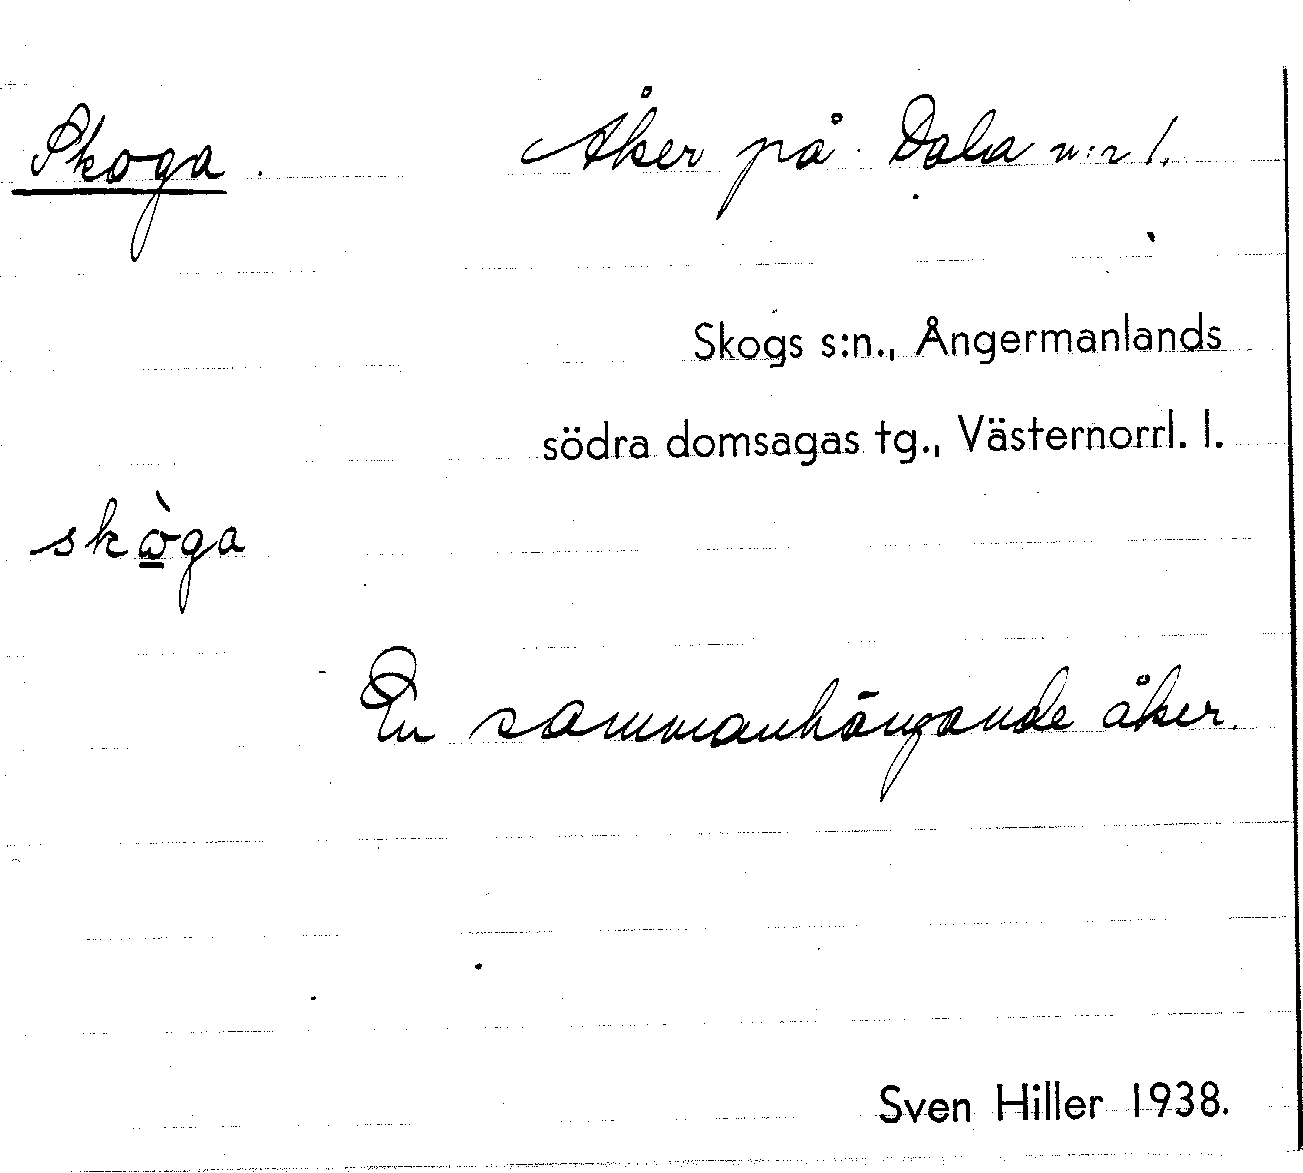 Skoga. Åker på Dala n:r 1.
Skogs s:n., Ångermanlands
södra domsagas tg., Västernorrl. l.
skò̲ga
En sammanhängande åker.
Sven Hiller 1938.